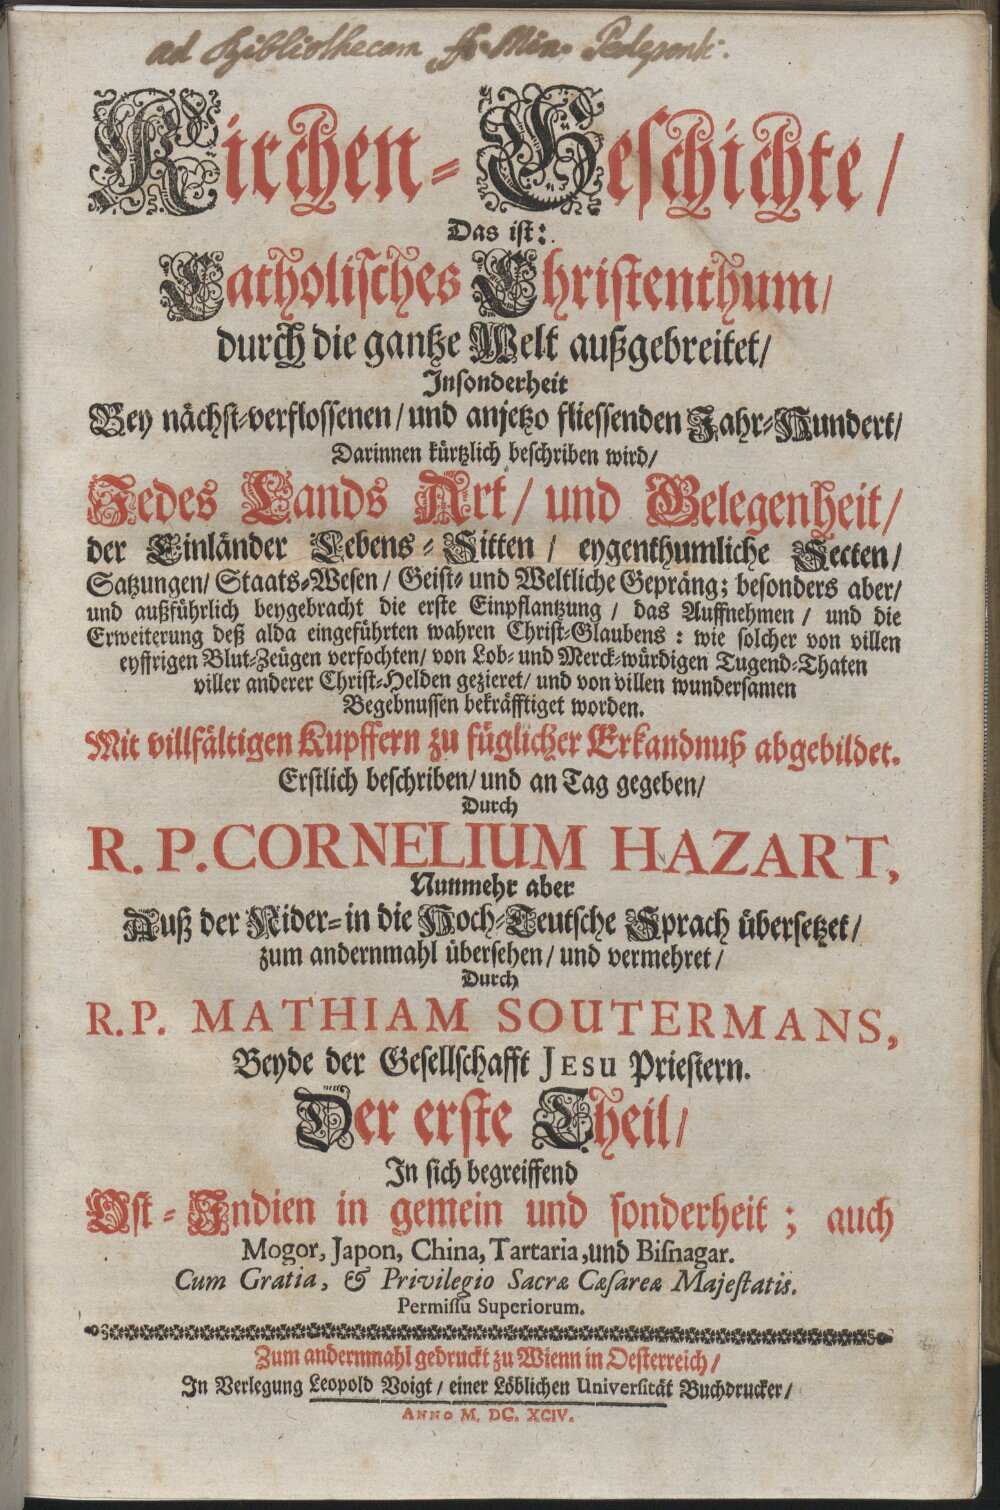 ad Bibliothecam Fr. Min.
Kirchen-Geschichte/
Das ist:
Catholisches Christenthum/
durch die gantze Welt außgebreitet/
Insonderheit
Bey nächst-verflossenen/ und anjetzo fliessenden Jahr-Hundert/
Darinnen kürtzlich beschriben wird/
Jedes Lands Art/ und Gelegenheit/
der Einländer Lebens-Sitten/ eygenthumliche Secten/
Satzungen/ Staats-Wesen/ Geist- und Weltliche Gepräng; besonders aber/
und außführlich beygebracht die erste Einpflantzung/ das Auffnehmen/ und die
Erweiterung deß alda eingeführten wahren Christ-Glaubens: wie solcher von villen
eyffrigen Blut-Zeügen verfochten/ von Lob- und Merck-würdigen Tugend-Thaten
viller anderer Christ-Helden gezieret/ und von villen wundersamen
Begebnussen bekräfftiget worden.
Mit villfältigen Kupffern zu füglicher Erkandnuß abgebildet.
Erstlich beschriben/ und an Tag gegeben/
Durch
R. P. CORNELIUM HAZART,
Nunmehr aber
Auß der Nider- in die Hoch-Teutsche Sprach übersetzet/
zum andernmahl übersehen/ und vermehret/
Durch
R. P. MATHIAM SOUTERMANS,
Beyde der Gesellschafft JESU Priestern.
Der erste Theil/
In sich begreiffend
Ost-Indien in gemein und sonderheit; auch
Mogor, Japon, China, Tartaria, und Bisnagar.
Cum Gratia, & Privilegio Sacræ Cæsareæ Majestatis.
Permissu Superiorum.
Zum andernmahl gedruckt zu Wienn in Oesterreich/
In Verlegung Leopold Voigt/ einer Löblichen Universität Buchdrucker/
ANNO M. DC. XCIV.